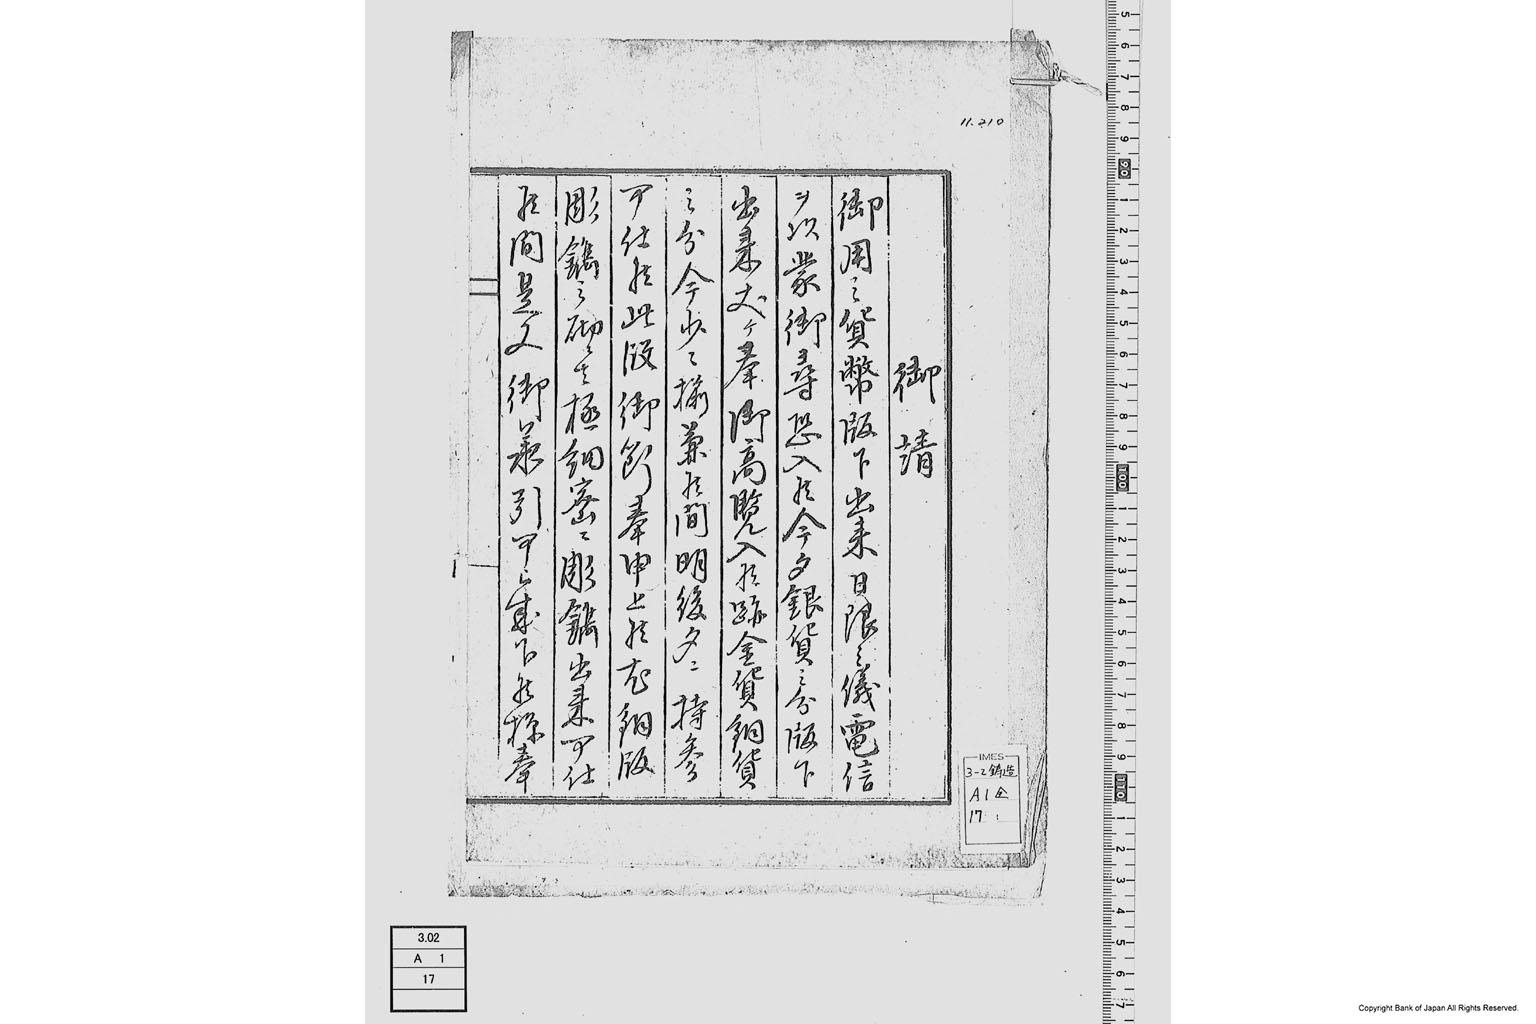 御請
御用之貨幣版下出来日限之儀電信
ヲ以蒙御尋恐入候今夕銀貨之分版下
出来丈ケ奉御高覧入候跡金貨銅貨
之分今少々揃兼候間明後夕ニ持参
可仕候此段御断奉申上候尤銅版
彫鐫之砌ニ者極細密ニ彫鐫出来可仕
候間是又御承引可被成下候様奉
11.210
IMES
3-2鋳造
A1金
17
3.02
A 1
17
Copyright Bank of Japan All Rights Reserved.